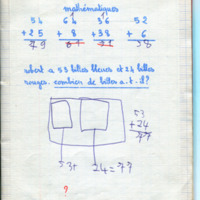 mathématiques
54 64 36 52
+25 + 8 +38 + 6
79 58
robert a 53 billes bleues et 24 billes
rouges. combien de billes a.t.il?
53
+24
77
53+ 24=77
?